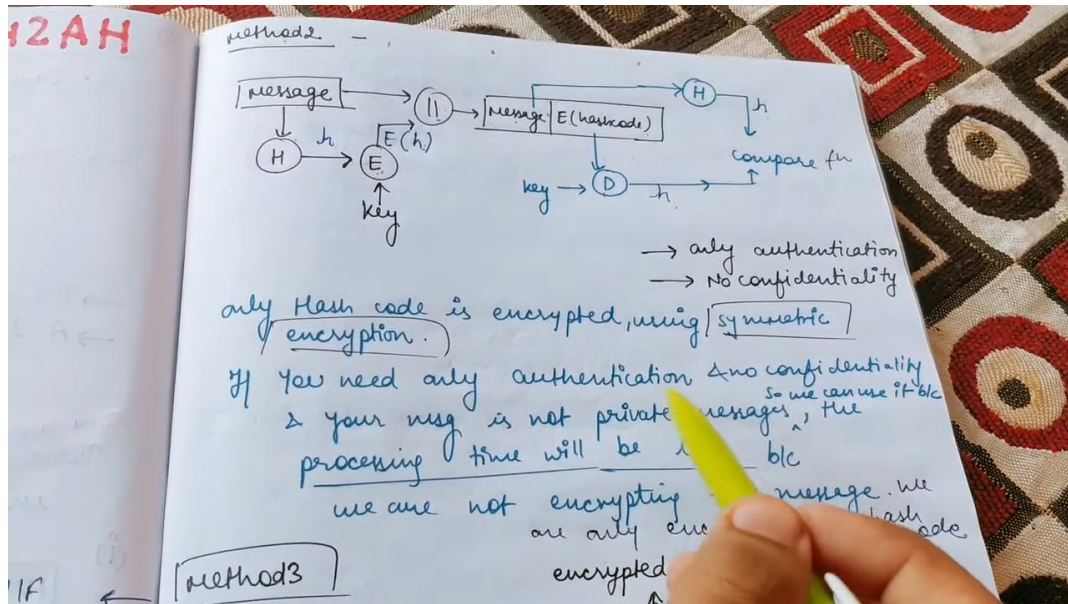 H2AH
Method2 -
Message
||
Message E(hashcode)
H
h
H
h
E
E(h)
Key
Key
D
h
compare fn
→ only authentication
→ No confidentiality
only Hash code is encrypted, using symmetric
encryption.
If You need only authentication & no confidentiality
so we can use it b/c
& your msg is not private messages, the
processing time will be b/c
we are not encrypting message. we
are only enc hash code
encrypted
Method3